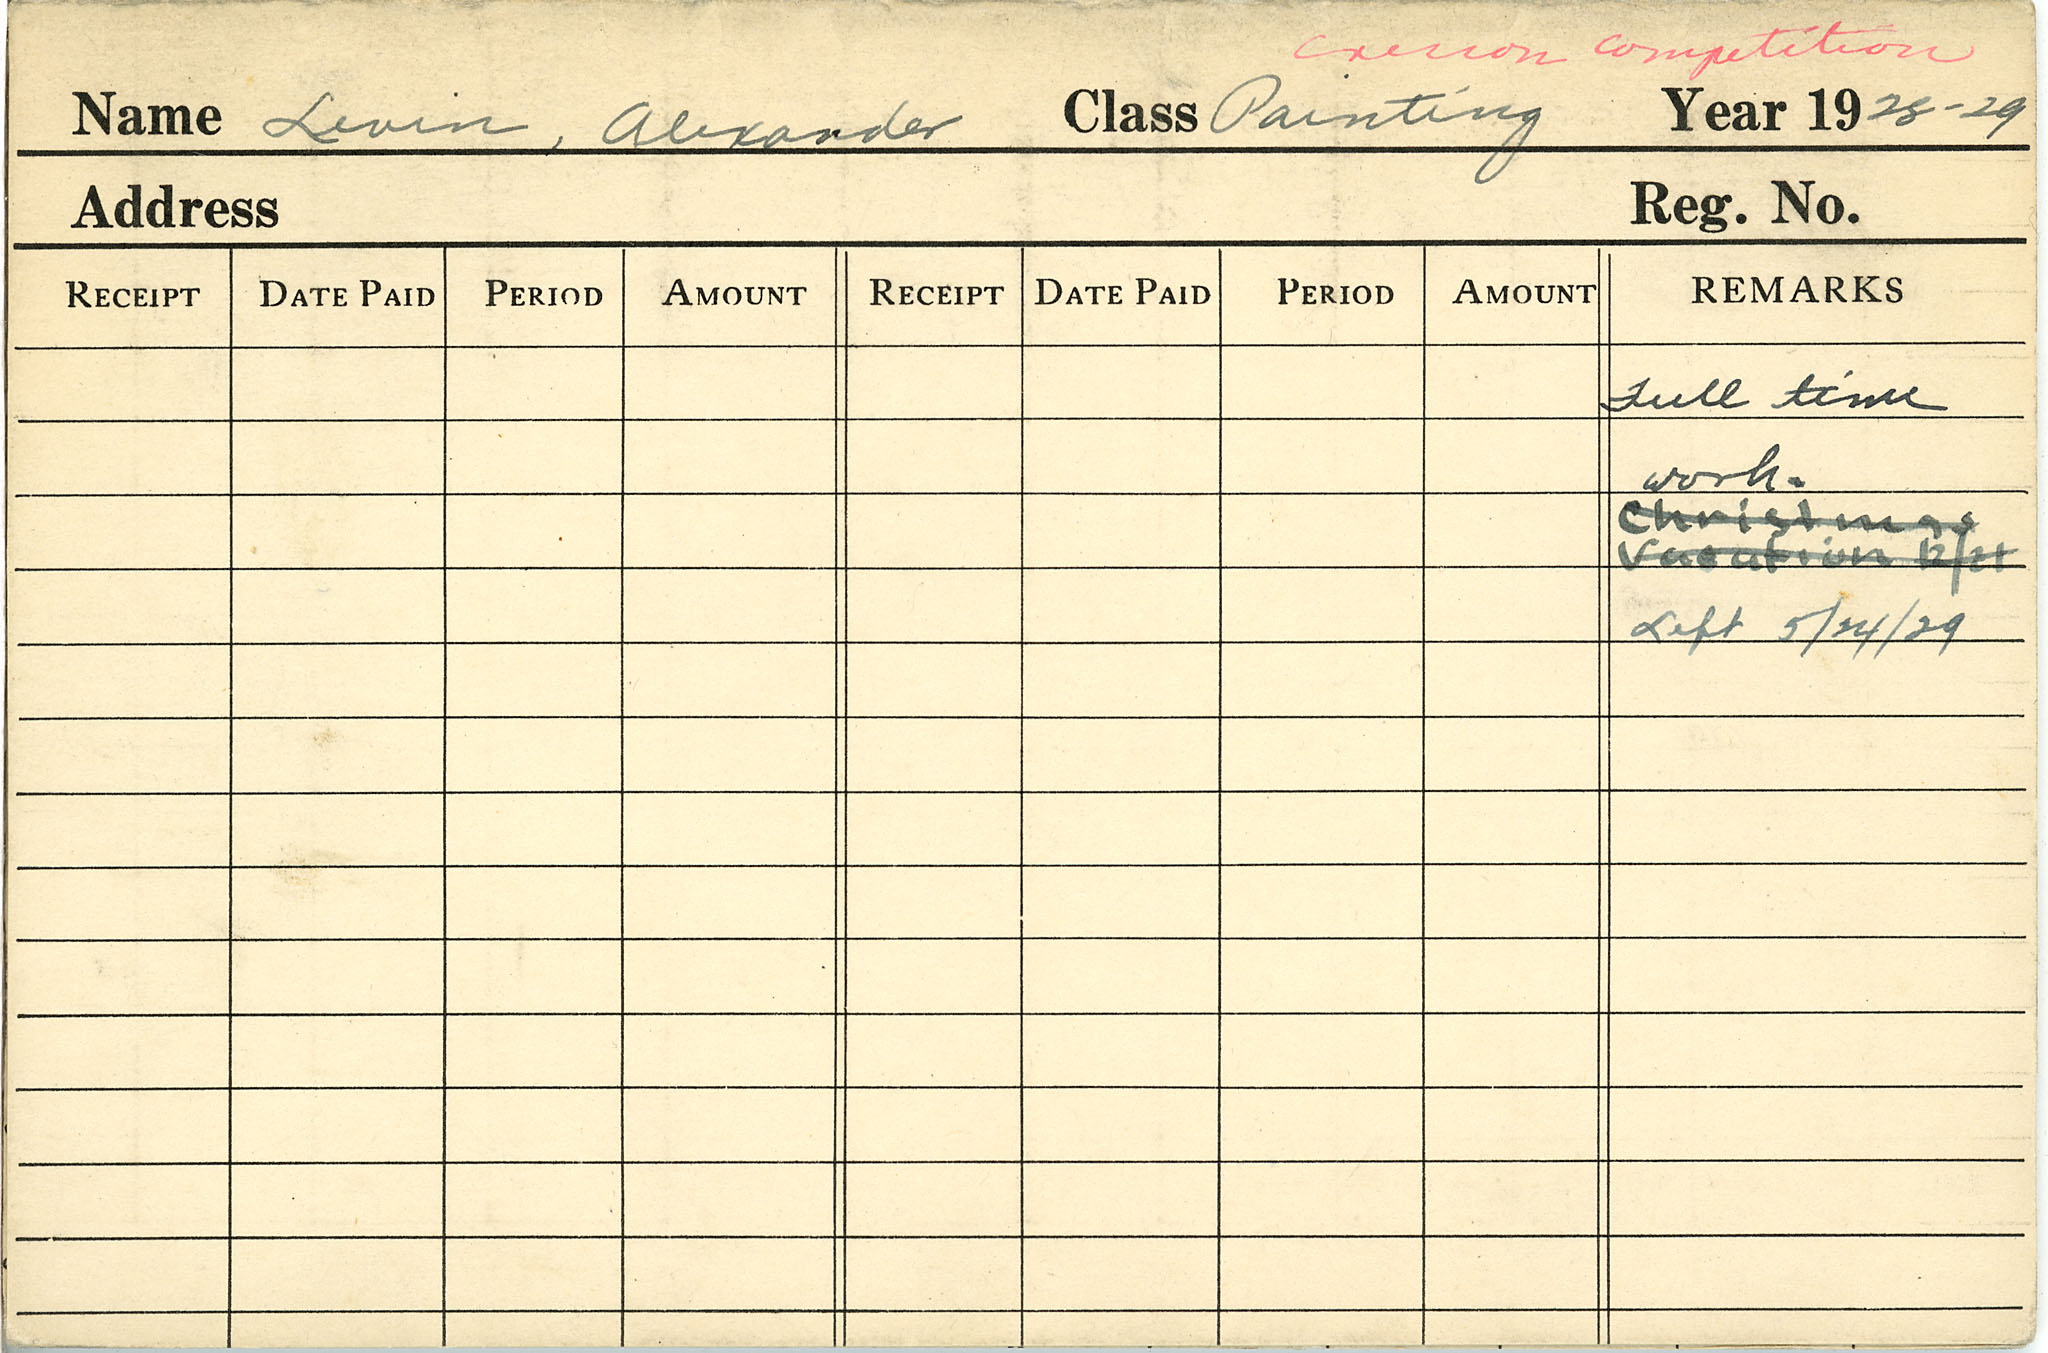 Cresson Competition
Name Levin, Alexander Class Painting Year 1928-29
Address Reg. No.
RECEIPT DATE PAID PERIOD AMOUNT RECEIPT DATE PAID PERIOD AMOUNT REMARKS
Full time
work.
Christmas
Vacation 12/21
Left 5/24/29